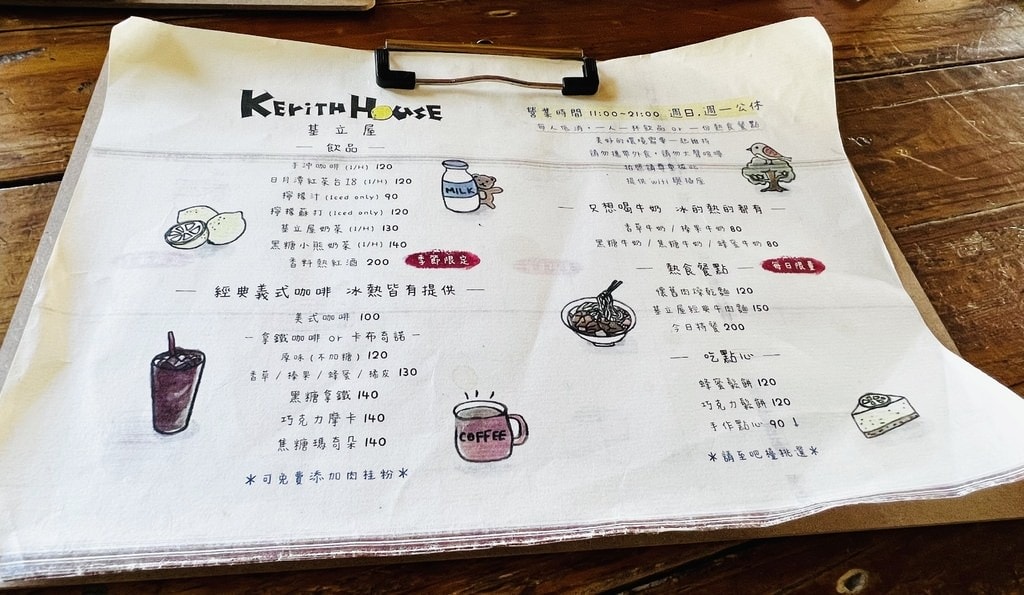 KEriTH HOUSE
基立屋
— 飲品 —
手沖咖啡 (I/H) 120
日月潭紅茶台18 (I/H) 120
檸檬汁 (Iced only) 90
檸檬蘇打 (Iced only) 120
基立屋奶茶 (I/H) 130
黑糖小熊奶茶 (I/H) 140
香料熱紅酒 200 季節限定
— 經典義式咖啡 冰熱皆有提供 —
美式咖啡 100
– 拿鐵咖啡 or 卡布奇諾 –
原味 (不加糖) 120
香草 / 榛果 / 蜂蜜 / 橘皮 130
黑糖拿鐵 140
巧克力摩卡 140
焦糖瑪奇朵 140
*可免費添加肉桂粉*
MILK
COFFEE
營業時間 11:00~21:00 週日,週一公休
每人低消,一人一杯飲品 or 一份熱食餐點
美好的環境需要一起維持
請勿攜帶外食,請勿大聲喧嘩
拍照請尊重彼此
提供 wifi 與插座
— 只想喝牛奶 冰的熱的都有 —
香草牛奶 / 榛果牛奶 80
黑糖牛奶 / 焦糖牛奶 / 蜂蜜牛奶 80
— 熱食餐點 — 每日限量
懷舊肉燥乾麵 120
基立屋經典牛肉麵 150
今日特餐 200
— 吃點心 —
蜂蜜鬆餅 120
巧克力鬆餅 120
手作點心 90 ↓
*請至吧檯挑選*